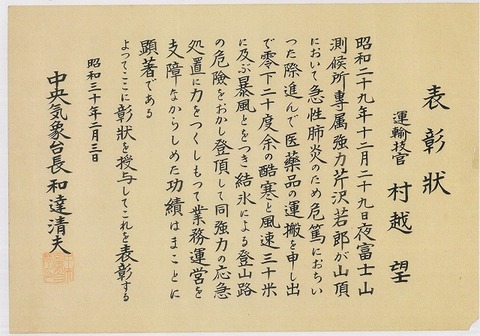 表彰状
運輸技官 村越望
昭和二十九年十二月二十九日夜富士山
測候所専属強力芹沢若郎が山頂
において急性肺炎のため危篤におちい
った際進んで医薬品の運搬を申し出
で零下二十度余の酷寒と風速三十米
に及ぶ暴風とをつき結氷による登山路
の危険をおかし登頂して同強力の応急
処置に力をつくしもって業務運営を
支障なからしめた功績はまことに
顕著である
よってここに彰状を授与してこれを表彰する
昭和三十年二月三日
中央気象台長 和達清夫